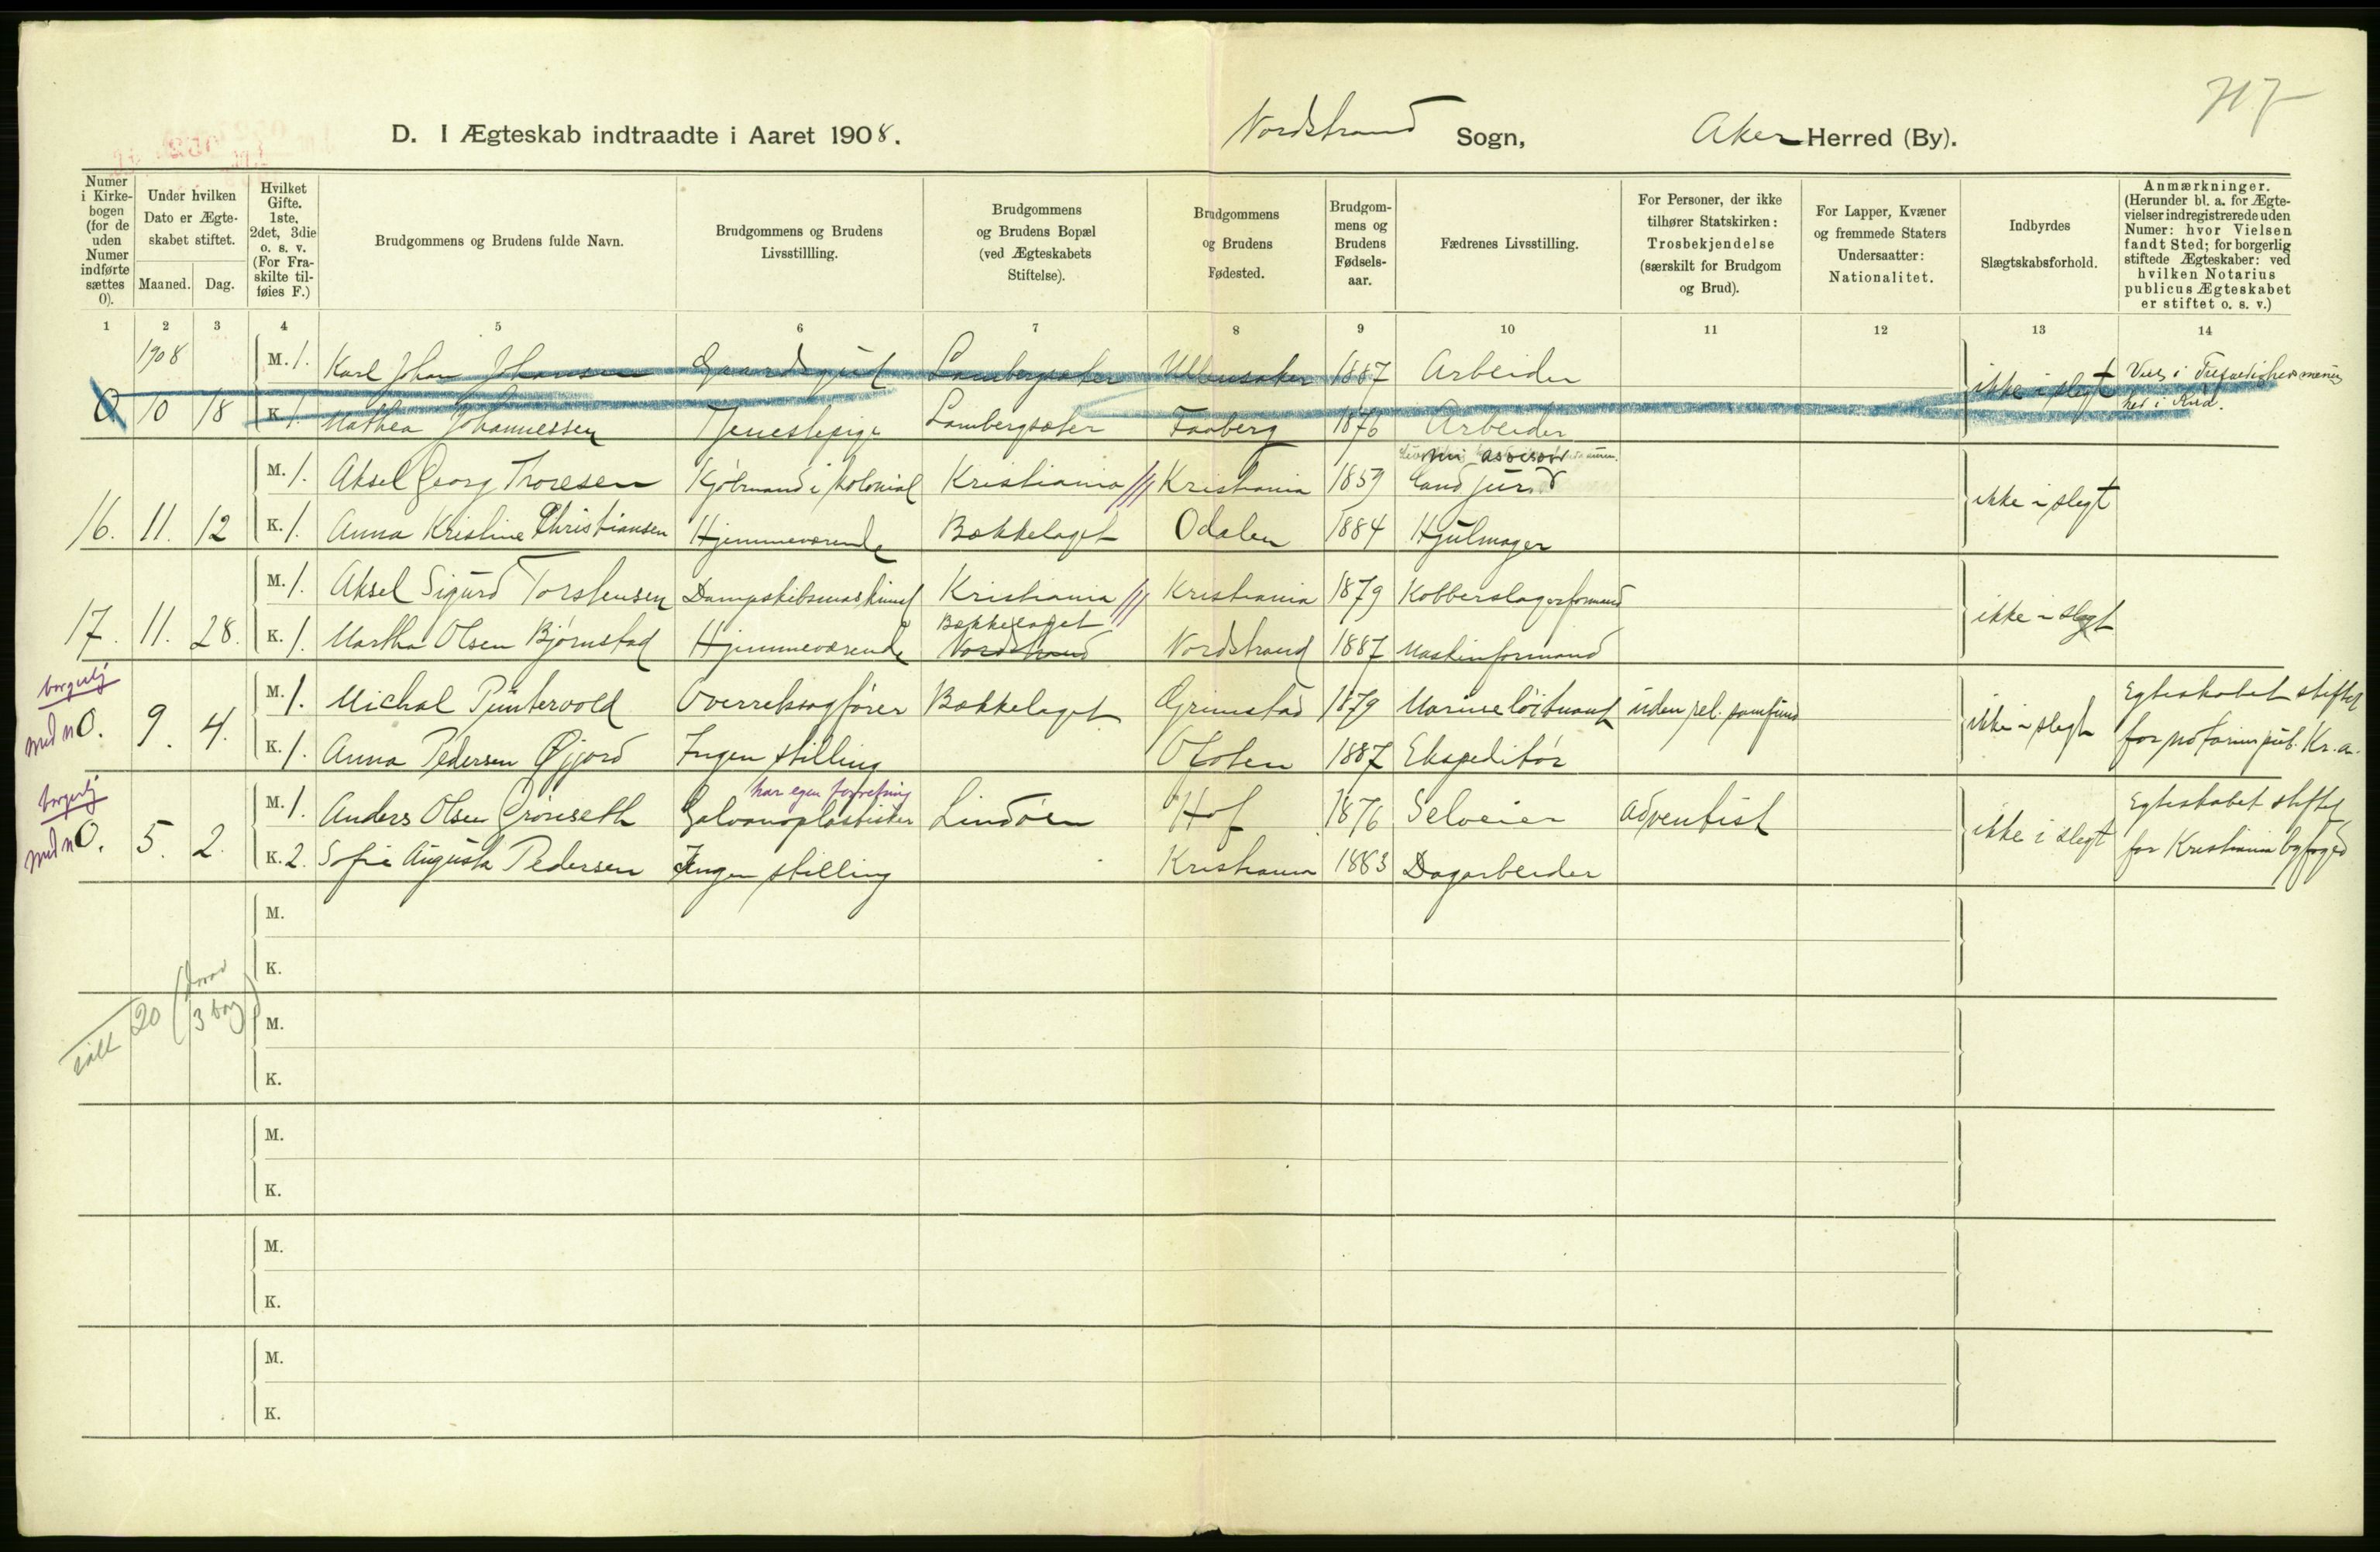 717
D. I Ægteskab indtraadte i Aaret 1908. Nordstrand Sogn, Aker Herred (By).
Numer i Kirkebogen (for de uden Numer indførte sættes 0).
Under hvilken Dato er Ægteskabet stiftet.
Maaned. Dag.
Hvilket Gifte. 1ste, 2det, 3die o. s. v. (For Fraskilte tilføies F.)
Brudgommens og Brudens fulde Navn.
Brudgommens og Brudens Livsstillling.
Brudgommens og Brudens Bopæl (ved Ægteskabets Stiftelse).
Brudgommens og Brudens Fødested.
Brudgommens og Brudens Fødselsaar.
Fædrenes Livsstilling.
For Personer, der ikke tilhører Statskirken: Trosbekjendelse (særskilt for Brudgom og Brud).
For Lapper, Kvæner og fremmede Staters Undersaatter: Nationalitet.
Indbyrdes Slægtskabsforhold.
Anmærkninger. (Herunder bl. a. for Ægtevielser indregistrerede uden Numer: hvor Vielsen fandt Sted; for borgerlig stiftede Ægteskaber: ved hvilken Notarius publicus Ægteskabet er stiftet o. s. v.)
1 2 3 4 5 6 7 8 9 10 11 12 13 14
1908
M. 1. Karl Johan Johansen Gaardsgut Lambergsæter Ullensaker 1887 Arbeider ikke i slegt Viet i
0 10 18 K. 1. Mathea Johannessen Tjenestepige Lambergsæter Faaberg 1876 Arbeider
M. 1. Aksel Georg Thoresen Kjøbmand i kolonial Kristiania Kristiania 1859 assessor ikke i slegt
16. 11. 12 K. 1. Anna Kristine Christiansen Hjemmeværende Bækkelaget Odalen 1884 Hjulmager
M. 1. Aksel Sigurd Torstensen Dampskibsmaskinist Kristiania Kristiania 1879 Kobberslagerformand ikke i slegt
Bækkelaget
17. 11. 28. K. 1. Martha Olsen Bjørnstad Hjemmeværende Nordstrand Nordstrand 1887 Maskinformand
borgerlig
med n 0. 9. 4. M. 1. Michal Puntervold Overretssagfører Bækkelaget Grimstad 1879 Marineløitnant uden rel. samfund ikke i slegt Egteskabet stiftet
K. 1. Anna Pedersen Øjjord Ingen stilling Ofoten 1887 Ekspeditør for notarius pub. Kr.a.
borgerlig
har egen forretning
med n 0. 5. 2. M. 1. Anders Olsen Grønseth Galvanoplastiker Lindøen Hof 1876 Selveier adventist ikke i slegt Egteskabet stiftet
K. 2. Sofie Augusta Pedersen Ingen stilling Kristiania 1883 Dagarbeider for Kristiania byfoged
M.
K.
ialt 20 (hvorav 3 borg)
M.
K.
M.
K.
M.
K.
M.
K.